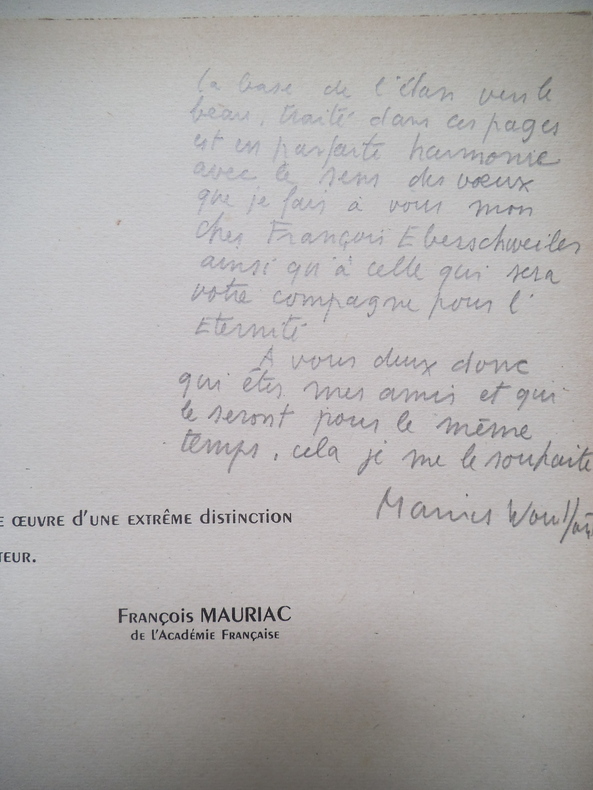 la base de l'élan vers le
beau, traité dans ces pages
est en parfaite harmonie
avec le sens des vœux
que je fais à vous mon
cher François Eberschweiler
ainsi qu'à celle qui sera
votre compagne pour l'
Eternité
A vous deux donc
qui êtes mes amis et qui
le seront pour le même
temps, cela je me le souhaite
E ŒUVRE d'UNE EXTRÊME distinction
TEUR.
François MAURIAC
de l'Académie Française